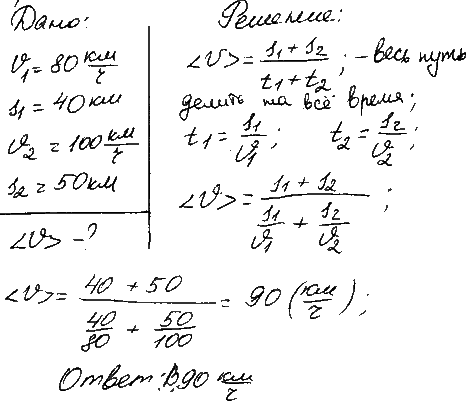 Дано:
υ₁ = 80 км/ч
s₁ = 40 км
υ₂ = 100 км/ч
s₂ = 50 км
<υ> - ?
Решение:
<υ> = (s₁ + s₂)/(t₁ + t₂); - весь путь
делить на всё время;
t₁ = s₁/υ₁; t₂ = s₂/υ₂;
<υ> = (s₁ + s₂)/(s₁/υ₁ + s₂/υ₂);
<υ> = (40 + 50)/(40/80 + 50/100) = 90 (км/ч);
Ответ: 90 км/ч